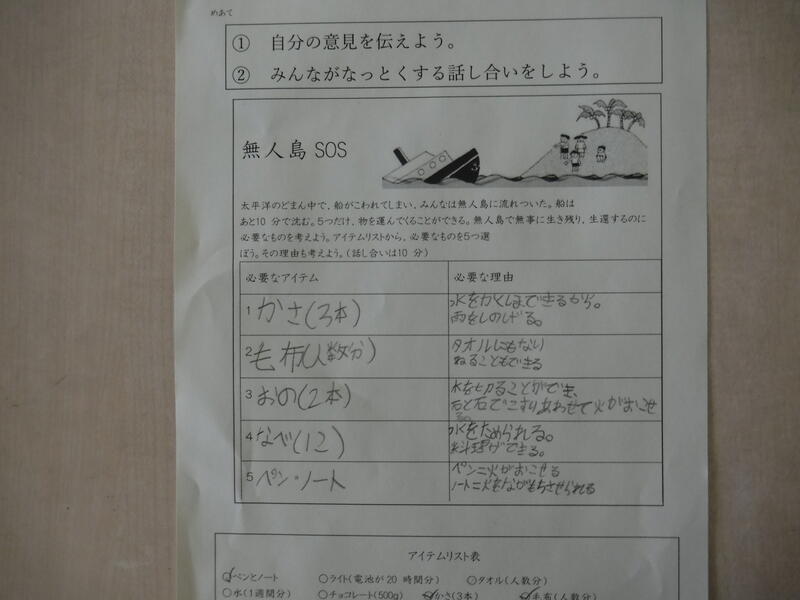 めあて
① 自分の意見を伝えよう。
② みんながなっとくする話し合いをしよう。
無人島 SOS
太平洋のどまん中で、船がこわれてしまい、みんなは無人島に流れついた。船は
あと10 分で沈む。5つだけ、物を運んでくることができる。無人島で無事に生き残り、生還するのに
必要なものを考えよう。アイテムリストから、必要なものを5つ選
ぼう。その理由も考えよう。(話し合いは10 分)
必要なアイテム 必要な理由
1 かさ(3本) 水をかくほできるから。
雨をしのげる。
2 毛布(人数分) タオルにもない
ねることもできる
3 おの(2本) 木を切ることができ、
石と石でこすりあわせて火がおこせ
る。
4 なべ(12) 水をためられる。
料理ができる。
5 ペン・ノート ペン=火がおこせる
ノート=火をながもちさせられる
アイテムリスト表
○ペンとノート ○ライト(電池が20 時間分) ○タオル(人数分)
○水(1週間分) ○チョコレート(500g) ○かさ(3本) ○毛布(人数分)